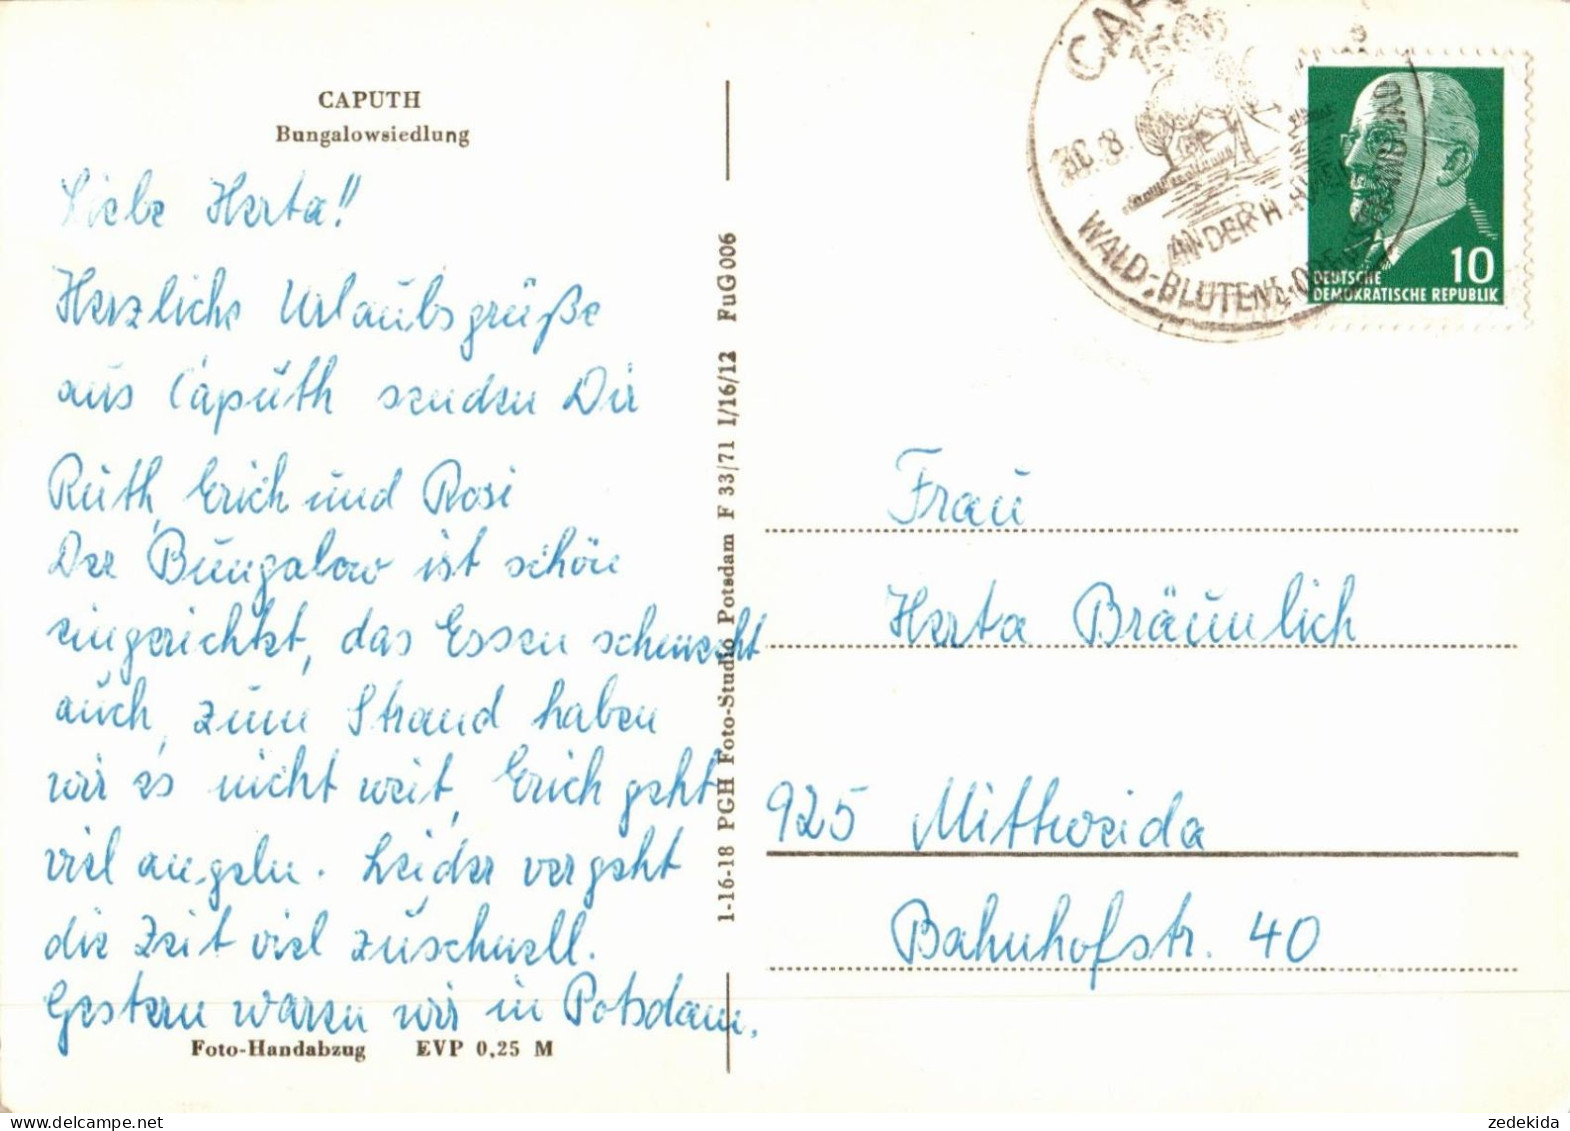 CAPUTH
Bungalowsiedlung
Liebe Herta!!
Herzliche Urlaubsgrüße
aus Caputh senden Dir
Ruth, Erich und Rosi
Der Bungalow ist schön
eingerichtet, das Essen schmeckt
auch, zum Strand haben
wir es nicht weit, Erich geht
viel angeln. Leider vergeht
die Zeit viel zuschnell.
Gestern waren wir in Potsdam.
Foto-Handabzug EVP 0,25 M
1-16-18 PGH Foto-Studio Potsdam F 33/71 I/16/12 FuG 006
30.8.
WALD-, BLÜTEN-
AN DER HAVEL
10
DEUTSCHE
DEMOKRATISCHE REPUBLIK
Frau
Herta Bräunlich
925 Mittweida
Bahnhofstr. 40
zedekida